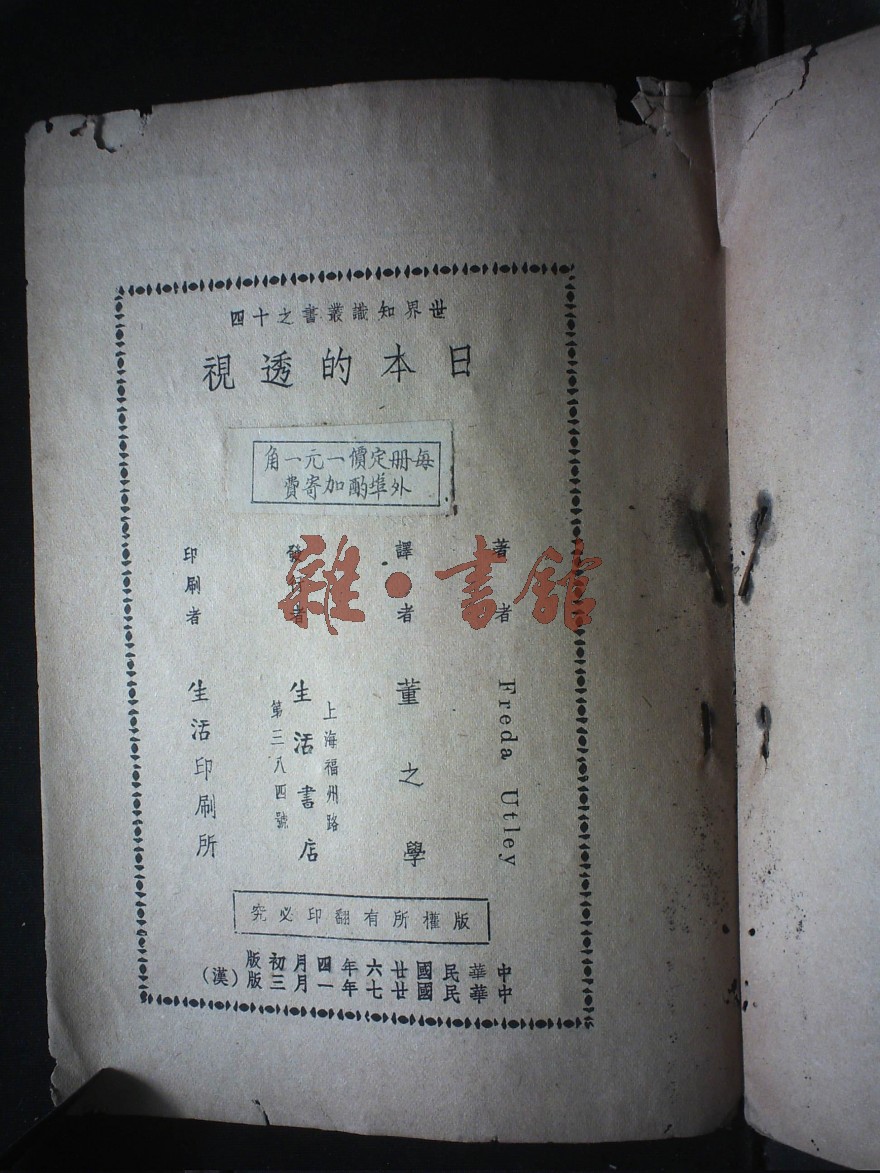 世界知識叢書之十四
日本的透視
每冊定價一元一角
外埠酌加寄費
著者 Freda Utley
譯者 董之學
發行者 生活書店
上海福州路
第三八四號
印刷者 生活印刷所
版權所有翻印必究
中華民國廿六年四月初版
中華民國廿七年一月三版(漢)
雜·書館